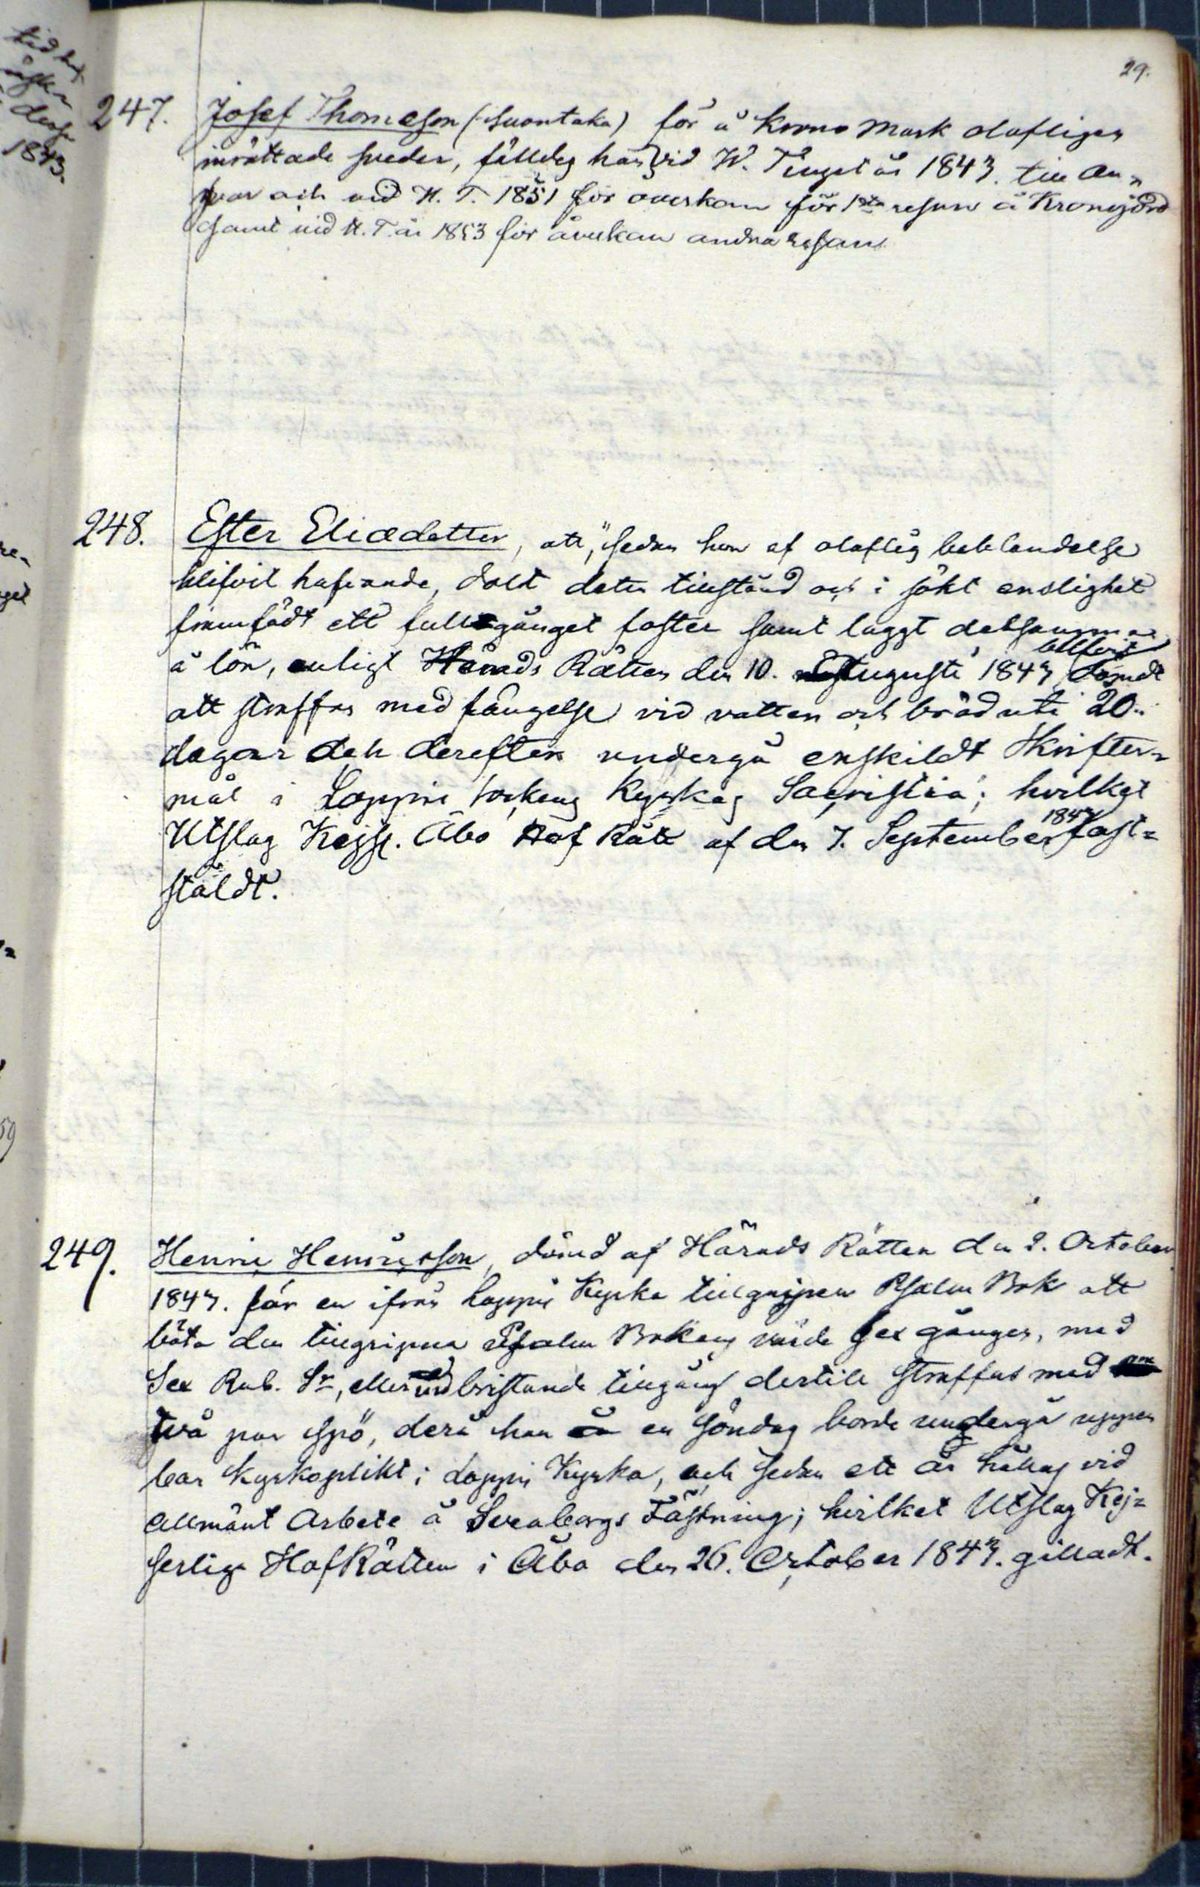 29.
247. Josef Thomæson (Suontaka) för å Krono Mark olofligen
inrättade sveder, fälldes här vid W. Tinget år 1843. till an=
svar och vid H. T. 1851 för averkan för 1sta resan å Kronojord
samt vid H. T. år 1853 för åverkan andra resan
248. Ester Eliædotter, att, sedan hon af oloflig beblandelse
blifvit hafvande, dolt detta tillstånd och i sökt enslighet
framfödt ett fullgånget foster samt laggt detsamma
å lön, enligt Härads Rätten den 10. Augusti 1843, blifvit dömdt
att straffas med fängelse vid vatten och bröd uti 20.
dagar och derefter undergå enskildt Skrifter=
mål i Loppis sockens Kyrkas Sacristia; hvilket
Utslag Kejs. Åbo Hof Rätt af den 7. September 1843 fast=
stäldt.
249. Henric Henricsson, dömd af Härads Rätten den 2. October
1843. för en ifrån Loppis Kyrka tillgripen Psalm Bok att
böta den tillgripna Psalm Bokens värde sex gånger, med
Sex Rub. Sr, eller vid bristande tillgång dertill straffas med
två par spö, derå han en Söndag borde undergå uppen
bar Kyrkoplikt i Loppis Kyrka, och sedan ett år hållas vid
allmänt Arbete å Sveaborgs Fästning; hvilket Utslag Kej=
serliga HofRätten i Åbo den 26. October 1843. gilladt.